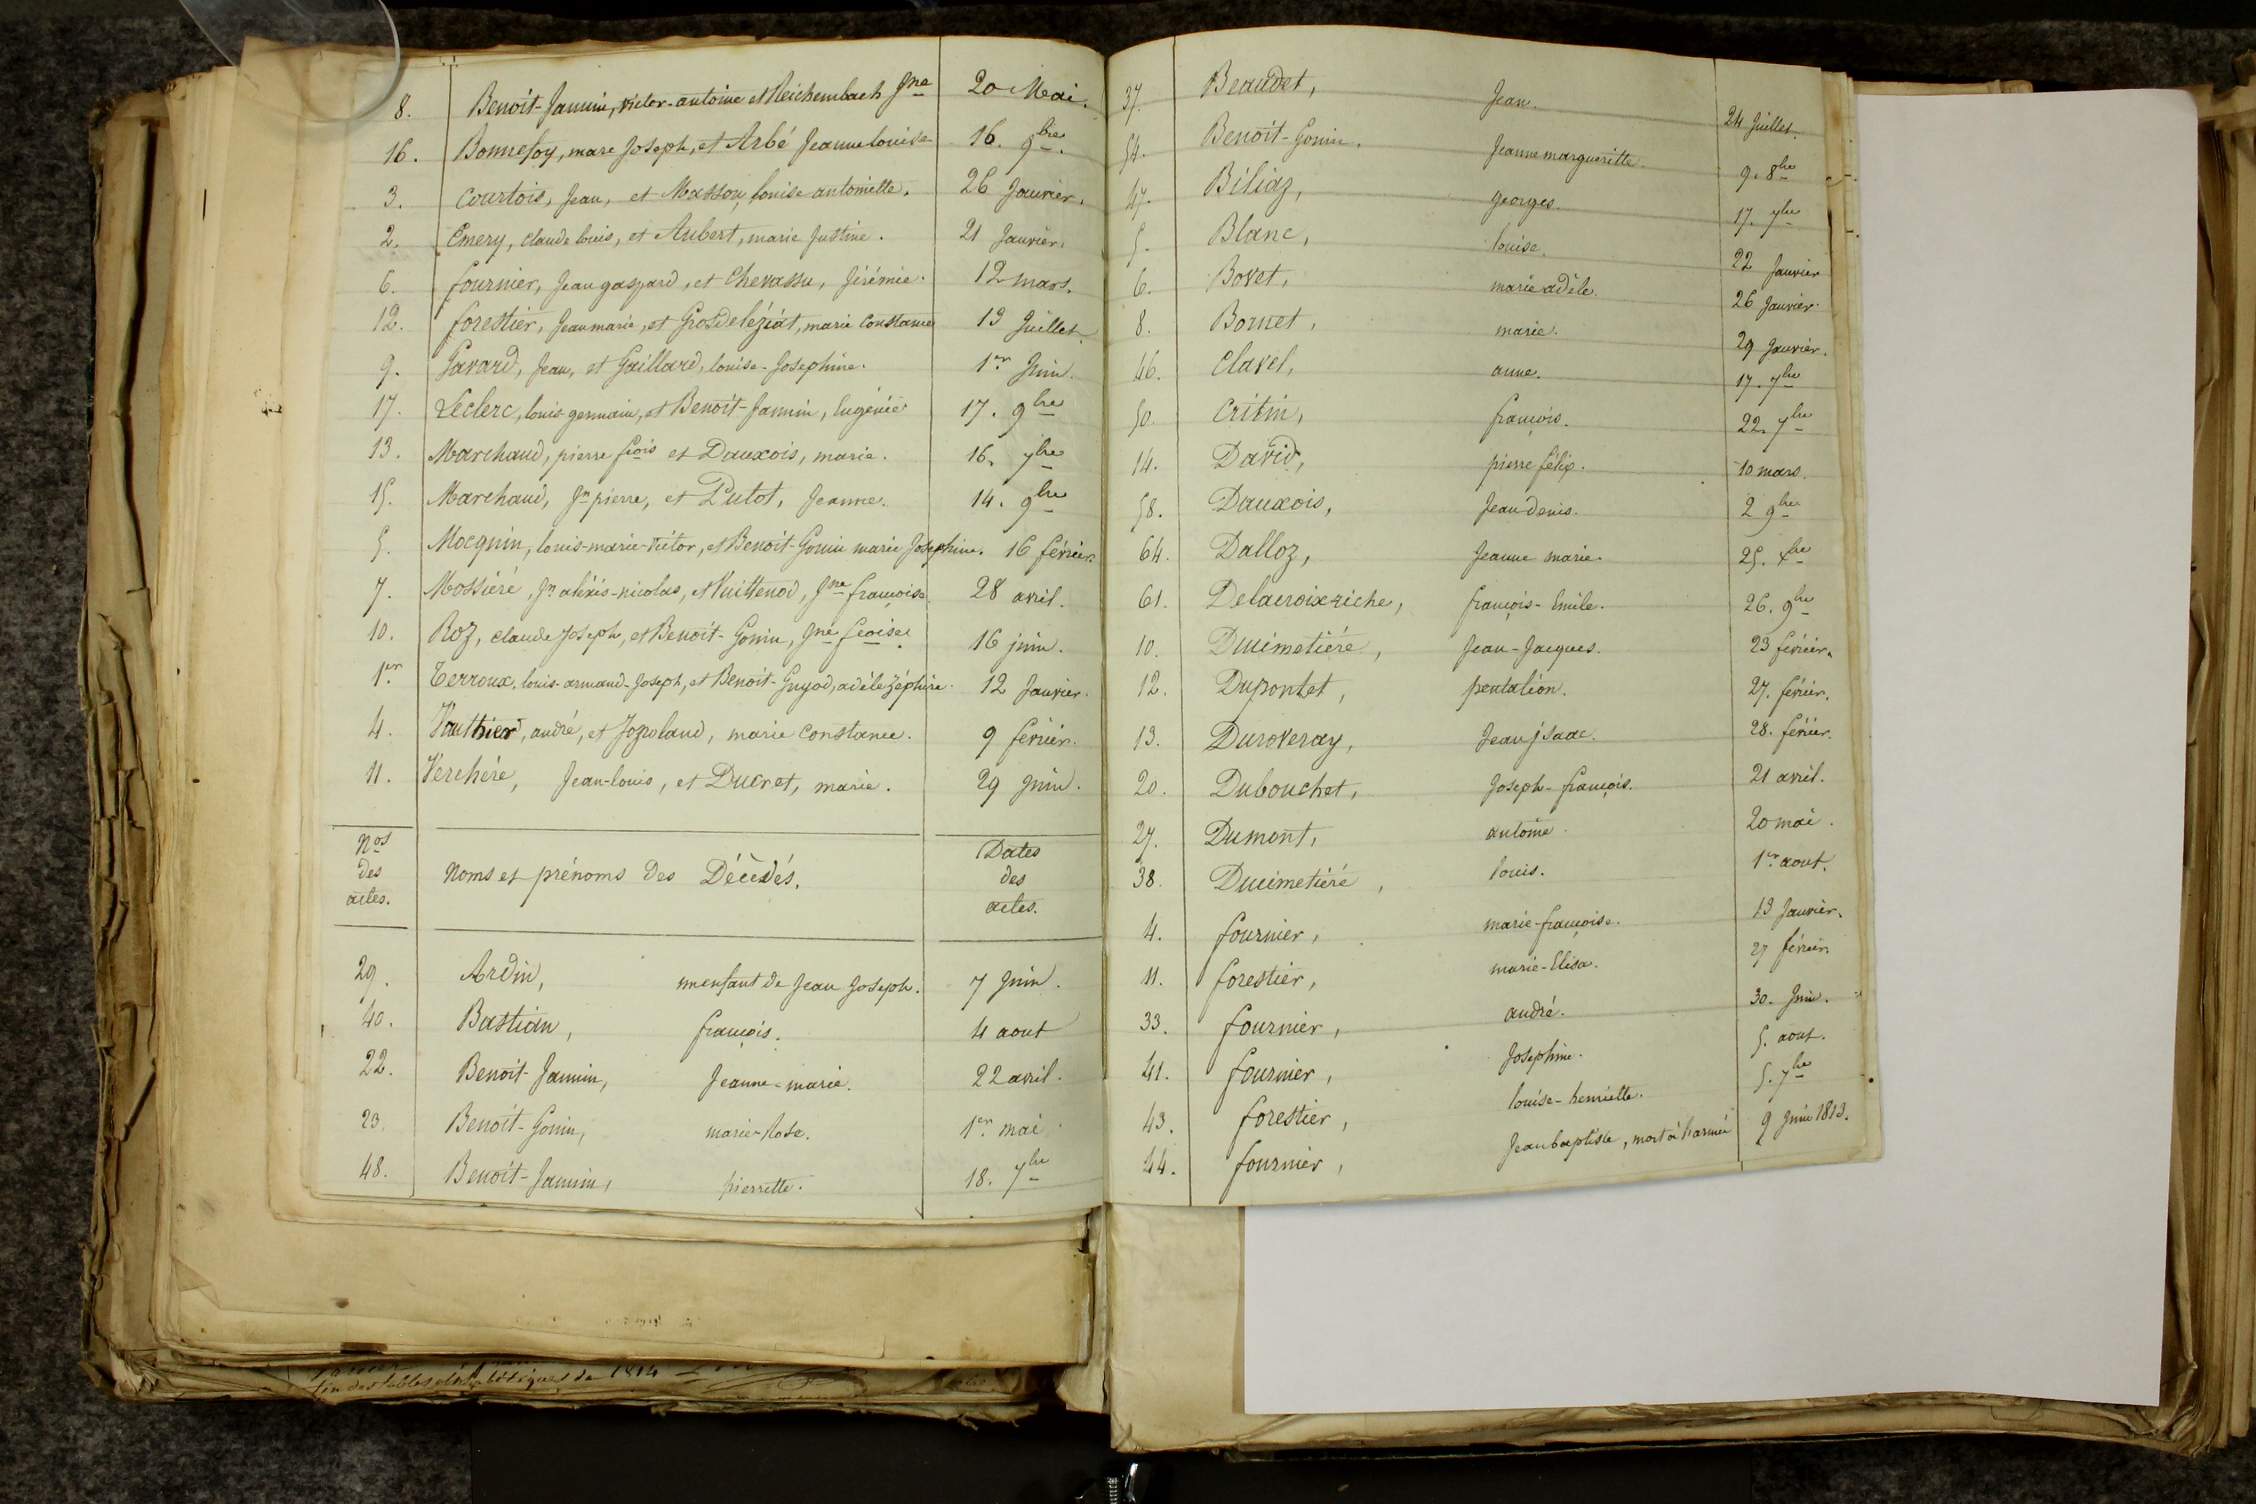 8. Benoit-Jannin, victor-antoine et Reichembach Jne 20 Mai.
16. Bonnefoy, marc Joseph, et Arbé Jeanne louise 16. 9bre.
3. Courtois, Jean, et Masson, louise antoinette. 26 Janvier.
2. Emery, claude louis, et Aubert, marie Justine. 21 Janvier.
6. fournier, Jean gaspard, et Chevassu, Jérémie. 12 mars.
12. forestier, Jean marie, et Grosdeléziat, marie Constance 13 Juillet.
9. Gavard, Jean, et Gaillard, louise-Josephine. 1er Juin.
17. Leclerc, louis germain, et Benoit-Jannin, Eugénie 17. 9bre
13. Marchand, pierre fcois et Dauxois, marie. 16. 7bre
15. Marchand, Jn pierre, et Putot, Jeanne. 14. 9bre
5. Mocquin, louis-marie-victor, et Benoit-Gonin marie Josephine. 16 février.
7. Mossiéré, Jn aléxis-nicolas, et Vuittenod, Jne françoise. 28 avril.
10. Roz, claude Joseph, et Benoit-Gonin, Jne fcoise. 16 juin.
1er Terroux, louis-armand-Joseph, et Benoit-Guyod, adèle zéphire. 12 Janvier.
4. Vauthier, andré, et Jozoland, marie constance. 9 février.
11. Verchére, Jean-louis, et Ducret, marie. 29 Juin.
Nos des actes. Noms et prénoms des Décédés. Dates des actes.
29. Ardin, un enfant de Jean Joseph. 7 Juin.
40. Bastian, françois. 4 aout
22. Benoit-Jannin, Jeanne-marie. 22 avril.
23. Benoit-Gonin, marie-Rose. 1er mai
48. Benoit-Jannin, pierrette. 18. 7bre
fin des tables alphabétiques de 1814
37. Beaudet, Jean. 24 Juillet.
54. Benoit-Gonin. Jeanne margueritte. 9. 8bre
47. Béliaz, georges. 17. 7bre
5. Blanc, louise. 22 Janvier
6. Bovet, marie adèle. 26 Janvier.
8. Bornet, marie. 29 Janvier.
46. Clavel, anne. 17. 7bre
50. Critin, françois. 22. 7bre
14. David, pierre félix. 10 mars.
58. Dauxois, Jean denis. 2 9bre
64. Dalloz, Jeanne marie. 25. Xbre
61. Delacroixriche, françois-Emile. 26. 9bre
10. Ducimetiéré, Jean-Jacques. 23 février.
12. Dupontet, pentaléon. 27. février.
13. Duroveray, Jean jsaac. 28. février.
20. Dubouchet, Joseph-françois. 21 avril.
27. Dumont, antoine. 20 mai.
38. Ducimetiéré, louis. 1er aout.
4. fournier, marie-françoise. 13 Janvier.
11. forestier, marie-Elisa. 27 février
33. fournier, andré. 30. Juin.
41. fournier, Josephine. 5. aout.
43. forestier, louise-henriette. 5. 7bre
44. fournier, Jean baptiste, mort à l'armée 9 Juin 1813.